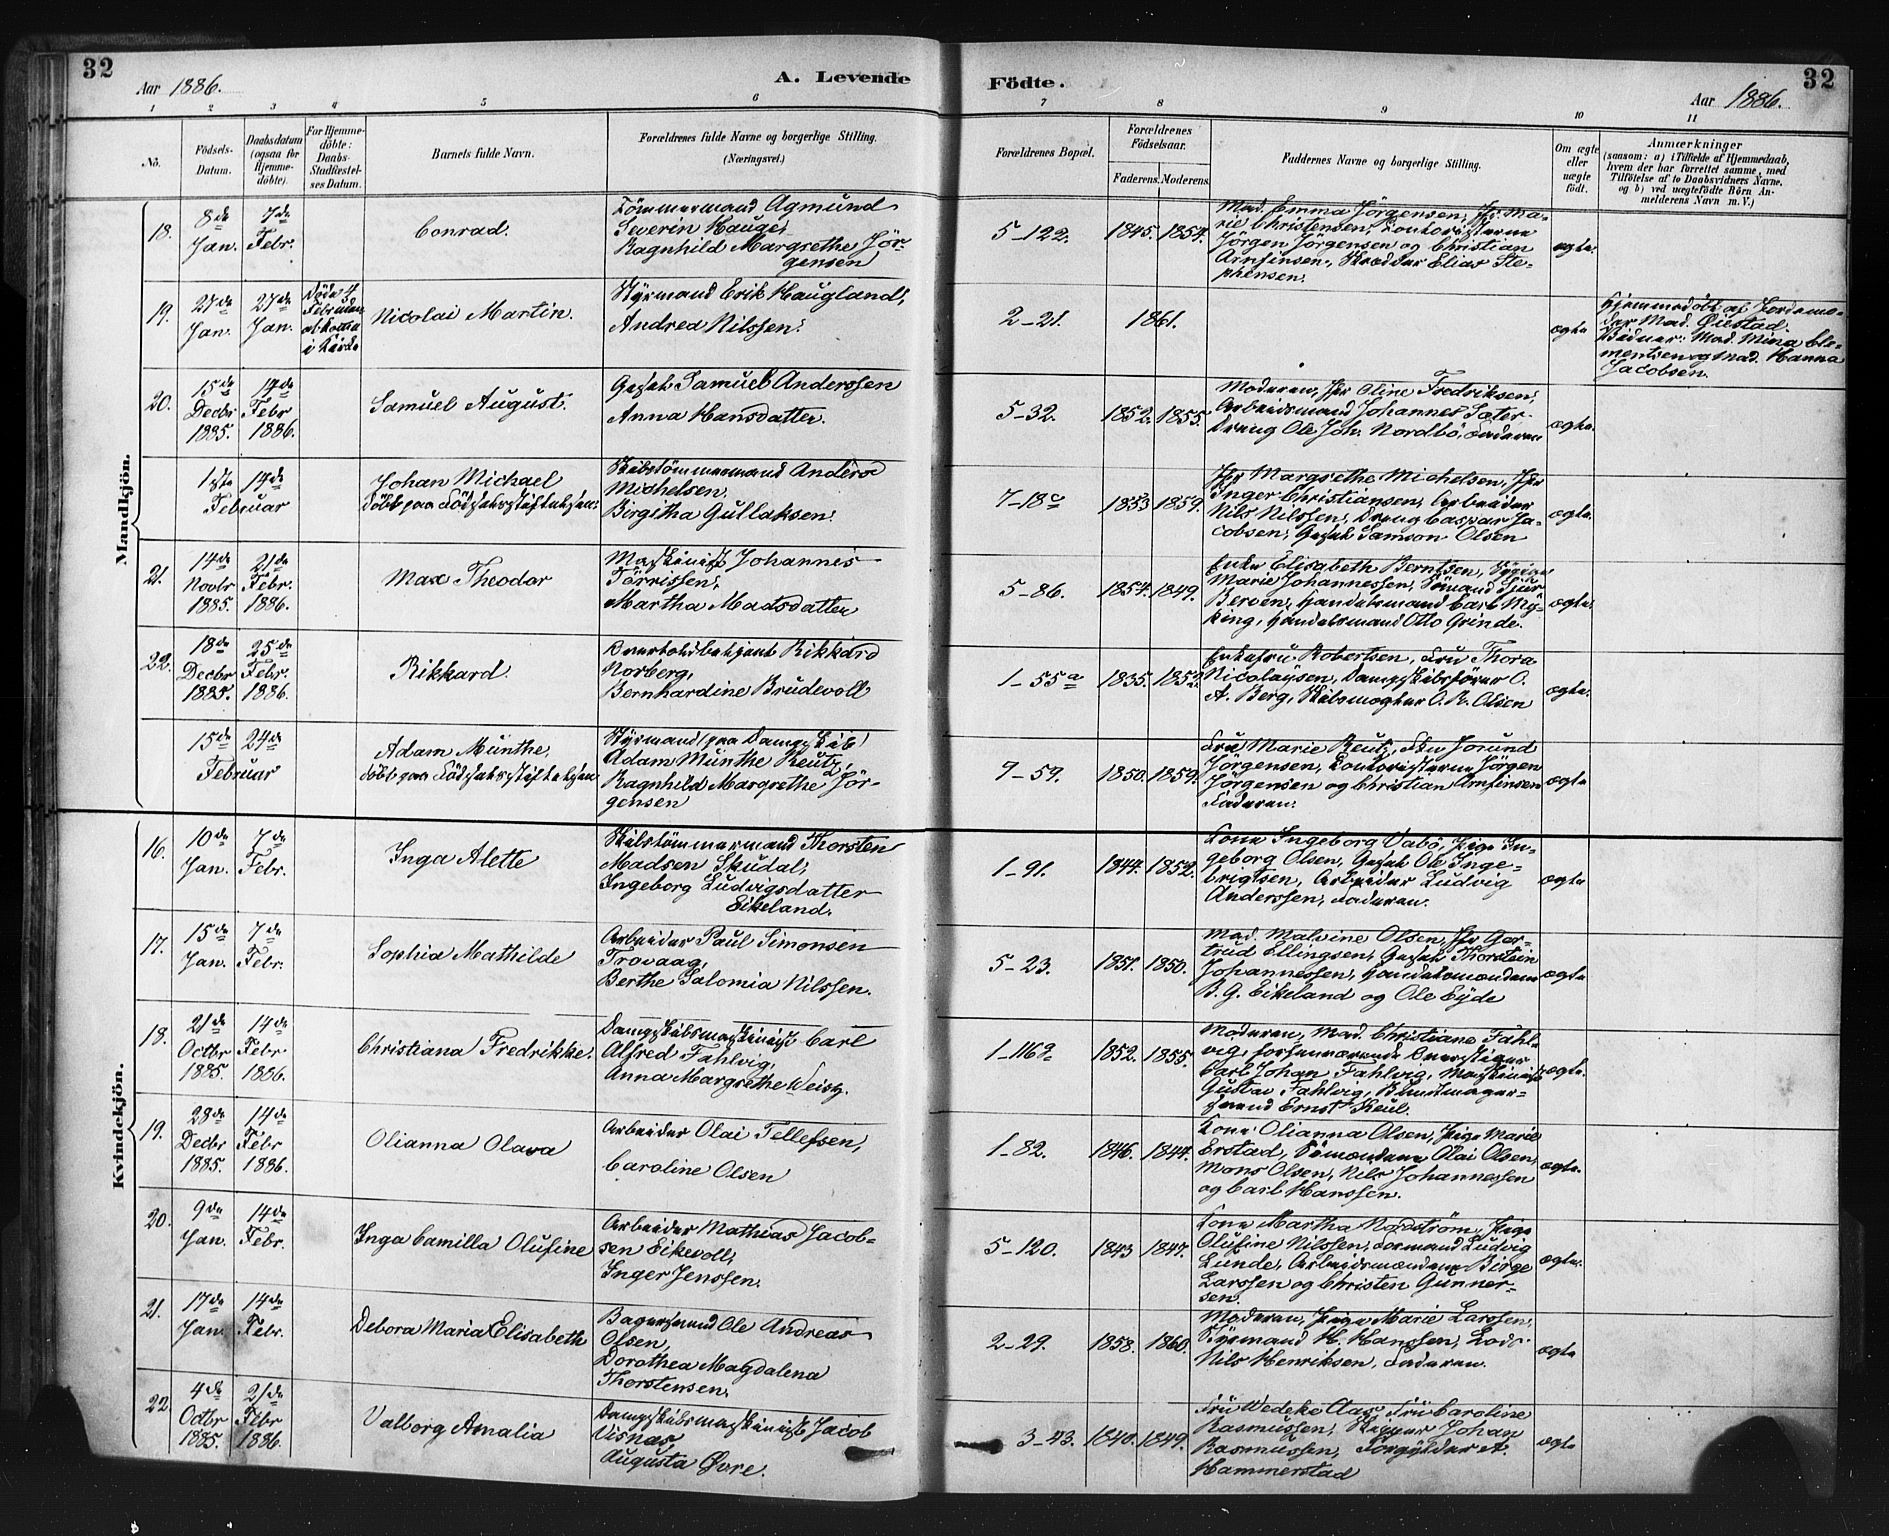 32
Aar 1886.
A. Levende
Födte.
Aar 1886.
32
1 2 3 4 5 6 7 8 9 10 11
No.
Födsels-
Datum.
Daabsdatum
(ogsaa for
Hjemme-
döbte).
For Hjemme-
döbte:
Daabs-
Stadfæstel-
ses Datum.
Barnets fulde Navn.
Forældrenes fulde Navne og borgerlige Stilling.
(Næringsvei.)
Forældrenes Bopæl.
Forældrenes
Födselsaar.
Faderens. Moderens.
Faddernes Navne og borgerlige Stilling.
Om ægte
eller
uægte
födt.
Anmærkninger
(saasom: a) i Tilfælde af Hjemmedaab,
hvem der har forrettet samme, med
Tilföielse af to Daabsvidners Navne,
og b) ved uægtefödte Börn An-
melderens Navn m. V.)
Mandkjön.
18.
8de
Jan.
7de
Febr.
Conrad.
Tömmermand Agmund
Severin Hauge,
Ragnhild Margrethe Jör-
gensen
5-122.
1845. 1854.
Mad. Emma Jörgensen, Jfr Ma-
rie Christensen, Contoristerne
Jörgen Jörgensen og Christian
Arnfinsen, Skrædder Elias Ste-
phensen.
ægte.
19.
27de
Jan.
27de
Jan.
Döde 4
Februar
at komme
i Kirke
Nicolai Martin.
Styrmand Erik Haugland,
Andrea Nilssen.
2-21.
1861.
ægte
Hjemmedöbt af Jordemo-
der Mad. Öiestad.
Vidner: Mad. Mina Cle-
mentsen og Mad. Hanna
Jacobsen.
20.
15de
Decbr
1885.
14de
Febr
1886.
Samuel August.
Gesel Samuel Anderssen
Anna Hansdatter.
5-32.
1852. 1855.
Moderen, Jfr Oline Fredriksen,
Arbeidsmand Johannes Sæter.
Dreng Ole Joh. Nordbö, Faderen
ægte.
1ste 14de
Februar
Johan Michael
Döbt paa Födselsstiftelsen.
Skibstömmermand Anders
Michelsen,
Birgitha Gullaksen.
7-18c
1853 1859.
Jfr Margrethe Michelsen, Jfr
Inger Christiansen, Arbeider
Nils Nilssen, Dreng Caspar Ja-
cobsen, Gesel Samson Olsen
ægte.
21.
14de
Novbr
1885.
21de
Febr.
1886.
Max Theodor
Maskinist Johannes
Törrissen,
Martha Madsdatter
5-86.
1854. 1849.
Enke Elisabeth Berntsen, Sypige
Marie Johannessen, Sömand Sjur
Berven, Handelsmand Carl My-
king, Handelsmand Otto Grinde.
ægte.
22.
18de
Decbr
1885.
25de
Febr.
1886.
Rikkard.
Overtoldbetjent Rikkard
Norberg,
Bernhardine Brudevoll
1-55a
1835. 1852.
Enkefru Robertsen, Fru Thora
Nicolaysen, Dampskibsförer O.
A. Berg, Skibsmægler O. R. Olsen
ægte.
15de 24de
Februar
Adam Münthe
Döbt paa Födselsstiftelsen
Styrmand (paa Dampskib)
Adam Münthe Reutz,
Ragnhild Margrethe Jör-
gensen
9-59.
1850. 1859.
Fru Marie Reutz, Fru Jorund
Jörgensen, Contoristerne Jörgen
Jörgensen og Christian Arnfinsen
Faderen.
ægte
Kvindekjön.
16.
10de
Jan.
7de
Febr.
Inga Alette
Skibstömmermand Thorsten
Madsen Skudal,
Ingeborg Ludvigsdatter
Eikeland.
1-91.
1844. 1852.
Kone Ingeborg Vabö, Pige In-
geborg Olsen, Gesel Ole Inge-
brigtsen, Arbeider Ludvig
Anderssen, Faderen.
ægte
17.
15de
Jan.
7de
Febr.
Sophia Mathilde
Arbeider Paul Simonsen
Trovaag,
Berthe Salomia Nilssen.
5-23.
1851. 1850.
Mad. Malvine Olsen, Jfr Ger-
trud Ellingsen, Gesel Thorstein
Johannessen, Handelsmændene
B. G. Eikeland og Ole Eyde
ægte
18.
21de
Octbr
1885.
14de
Febr
1886.
Christiana Fredrikke.
Dampskibsmaskinist Carl
Alfred Fahlvig,
Anna Margrethe Weisz.
1-116a
1852. 1855.
Moderen, Mad. Christiane Fahl-
vig, forhenværende Overstiger
Carl Johan Fahlvig, Maskinist
Gustav Fahlvig, Buntmager-
svend Ernst Keul.
ægte.
19.
28de
Decbr
1885.
14de
Febr
1886.
Olianna Olava
Arbeider Olai Tellefsen,
Caroline Olsen
1-82.
1846. 1847.
Kone Olianna Olsen, Pige Marie
Erstad, Sömændene Olai Olsen,
Mons Olsen, Nils Johannessen
og Carl Hanssen.
ægte.
20.
9de
Jan.
14de
Febr.
Inga Camilla Olufine
Arbeider Mathias Jacob-
sen Eikevoll,
Inger Jenssen.
5-120.
1843 1847.
Kone Martha Nordström, Pige
Olufine Nilssen, Formand Ludvig
Lunde, Arbeidsmændene Birge
Larssen og Christen Gunner-
sen.
ægte.
21.
17de
Jan.
14de
Febr.
Debora Maria Elisabeth
Bagersvend Ole Andreas
Olsen,
Dorothea Magdalena
Thorstensen.
2-29.
1858. 1860.
Moderen, Pige Marie Larssen,
Styrmand H. Hanssen, Lods
Nils Henriksen, Faderen.
ægte
22.
4de
Octbr
1885.
21de
Febr
1886.
Valborg Amalia
Dampskibsmaskinist Jacob
Visnæs
Augusta Övre.
3-43.
1840. 1849.
Fru Wedeke Aas, Fru Caroline
Rasmussen, Skipper Johan
Rasmussen, Forgylder A.
Hammerstad
ægte